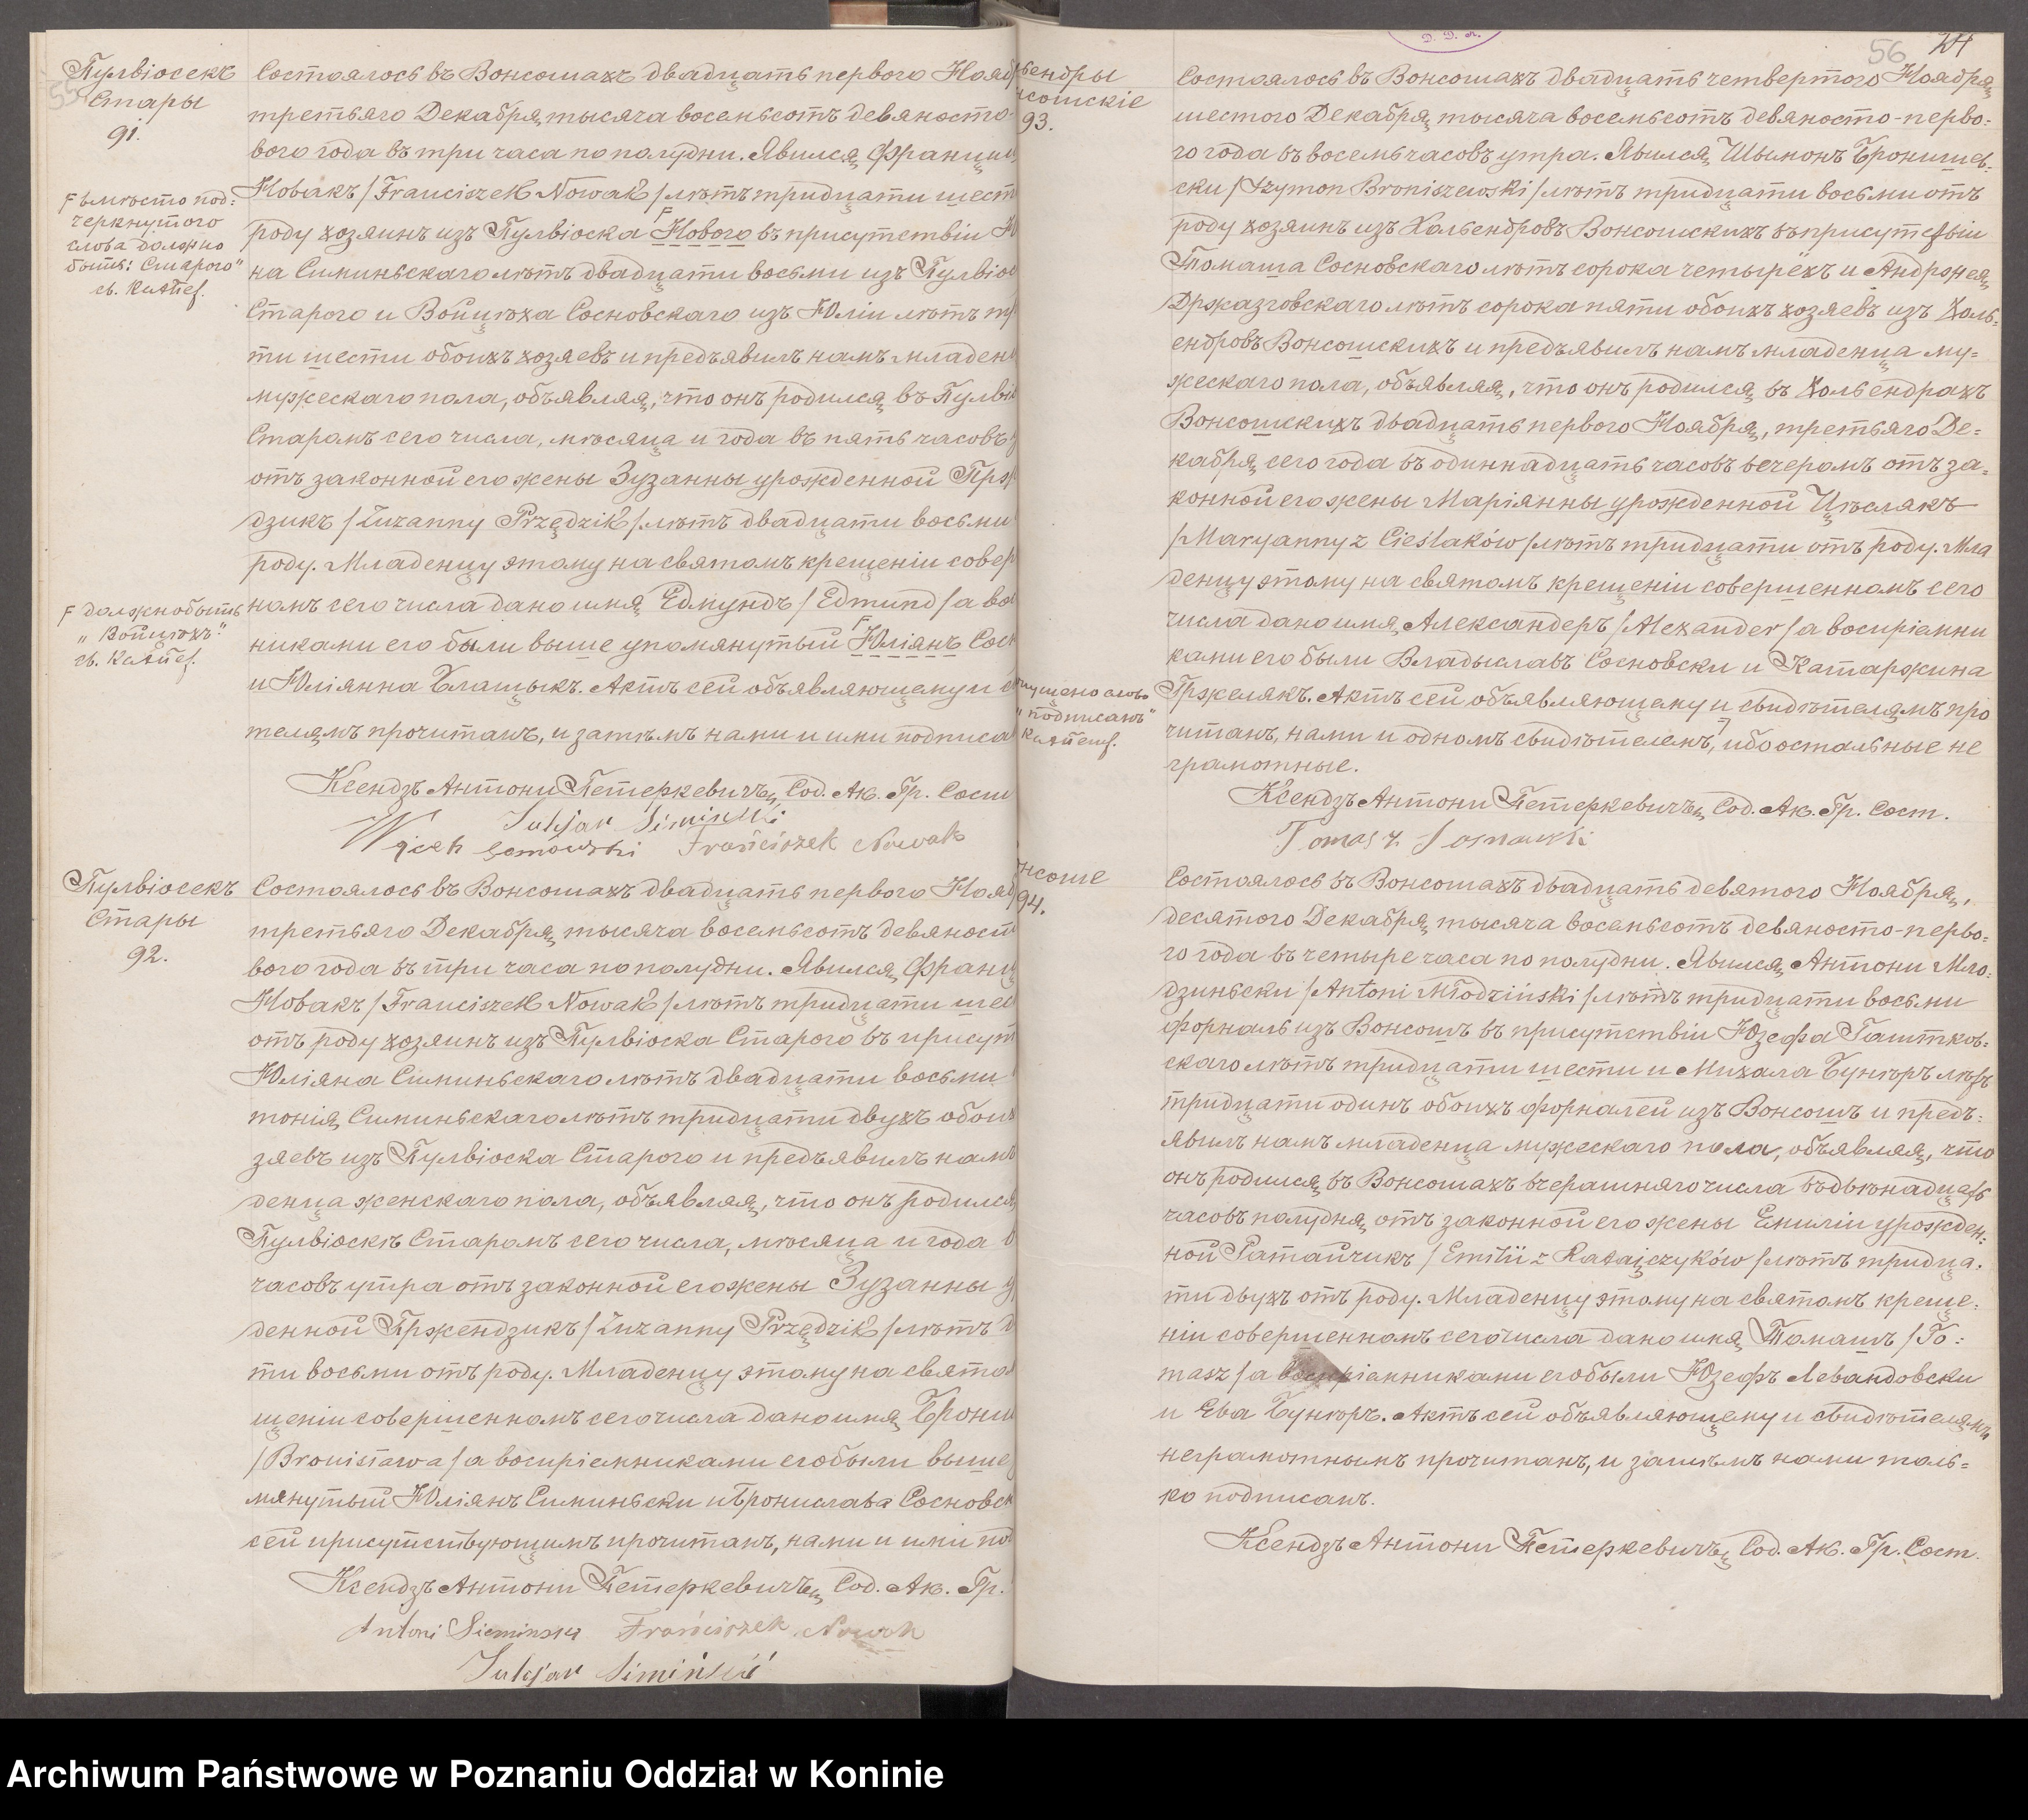 Пулвіосекъ
Стары
91.
Состоялось въ Вонсошахъ двадцать перваго Нояб
третьяго Декабря тысяча восемьсотъ девяносто-
вого года въ три часа по полудни. Явился Франциш
Новакъ /Franciszek Nowak/ лѣтъ тридцати шест
роду хозяинъ изъ Пулвіоска Нового въ присутствіи Ю
на Симиньскаго лѣтъ двадцати восьми изъ Пулвіос
Старого и Войцѣха Сосновскаго изъ Юліи лѣтъ
ти шести обоихъ хозяевъ и предъявилъ намъ младен
мужескаго пола, объявляя, что онъ родился въ Пулвіо
Старомъ сего числа, мѣсяца и года въ пять часовъ
отъ законной его жены Зузанны урожденной Прж
дзикъ /Zuzanny Przędzik/ лѣтъ двадцати восьми
роду. Младенцу этому на святомъ крещеніи совер
номъ сего числа дано имя Едмундъ /Edmund/ а вос
никами его были выше упомянутый Юліянъ Сос
и Юліянна Блащыкъ. Актъ сей объявляющему и с
телямъ прочитанъ, и затѣмъ нами и ими подписа
Ксендзъ Антони Петеркевичъ, Сод. Ак. Гр. Сост
Juljan Simiński
Wojceh Franciszek Nowak
F вмѣсто под-
черкнутого
слова должно
быть: Старого"
F должно быть
"Войцѣхъ."
Пулвіосекъ
Стары
92.
Состоялось въ Вонсошахъ двадцать перваго Нояб
третьяго Декабря тысяча восемьсотъ девяност
вого года въ три часа по полудни. Явился Франц
Новакъ /Franciszek Nowak/ лѣтъ тридцати шес
отъ роду хозяинъ изъ Пулвіоска Старого въ присут
Юліяна Симиньскаго лѣтъ двадцати восьми
тонія Симиньскаго лѣтъ тридцати двухъ обоих
зяевъ изъ Пулвіоска Старого и предъявилъ намъ
денца женскаго пола, объявляя, что онъ родился
Пулвіоскѣ Старомъ сего числа, мѣсяца и года
часовъ утра отъ законной его жены Зузанны у
денной Пржендзикъ /Zuzanny Przędzik/ лѣтъ д
ти восьми отъ роду. Младенцу этому на свято
щеніи совершенномъ сего числа дано имя Брони
/Bronisława/ а воспріемниками его были выше
мянутый Юліянъ Симиньски и Бронислава Сосновск
сей присутствующимъ прочитанъ, нами и ими под
Ксендзъ Антони Петеркевичъ, Сод. Ак. Гр.
Antoni Siemiński Franciszek Nowak
Juljan Simiński
56
ьендры
сошскіе
93.
Состоялось въ Вонсошахъ двадцать четвертого Ноября,
шестого Декабря тысяча восемьсотъ девяносто-перво-
го года въ восемь часовъ утра. Явился Шымонъ Бронишев-
ски /Szymon Broniszewski/ лѣтъ тридцати восьми отъ
роду хозяинъ изъ Хольендровъ Вонсошскихъ въ присутствіи
Томаша Сосновскаго лѣтъ сорока четырёхъ и Андржея
Држазговскаго лѣтъ сорока пяти обоихъ хозяевъ изъ Холь-
ендровъ Вонсошскихъ и предъявилъ намъ младенца му-
жескаго пола, объявляя, что онъ родился въ Хольендрахъ
Вонсошскихъ двадцать перваго Ноября, третьяго Де-
кабря сего года въ одиннадцать часовъ вечеромъ отъ за-
конной его жены Маріянны урожденной Цѣслякъ
/Maryanny z Cieślaków/ лѣтъ тридцати отъ роду. Мла
денцу этому на святомъ крещеніи совершенномъ сего
числа дано имя Александеръ /Alexander/ а воспріемни
ками его были Владыславъ Сосновски и Катаржина
Гржелякъ. Актъ сей объявляющему и свидѣтелямъ про
читанъ, нами и одномъ свидѣтелемъ, ибо остальные не
грамотные.
Ксендзъ Антони Петеркевичъ, Сод. Ак. Гр. Сост.
Tomasz
пущено слово
"подписанъ"
нсоше
94.
Состоялось въ Вонсошахъ двадцать девятого Ноября,
десятого Декабря тысяча восемьсотъ девяносто-перво-
го года въ четыре часа по полудни. Явился Антони Мло-
дзиньски /Antoni Młodziński/ лѣтъ тридцати восьми
форналь изъ Вонсошъ въ присутствіи Юзефа Гаштков-
скаго лѣтъ тридцати шести и Михала Бунѣръ лѣтъ
тридцати одинъ обоихъ форналей изъ Вонсошъ и предъ-
явилъ намъ младенца мужескаго пола, объявляя, что
онъ родился въ Вонсошахъ вчерашняго числа въ двѣнадцать
часовъ полудня отъ законной его жены Емиліи урожден-
ной Ратайчикъ /Emilii z Ratajczyków/ лѣтъ тридца-
ти двухъ отъ роду. Младенцу этому на святомъ креще-
ніи совершенномъ сего числа дано имя Томашъ /To-
masz/ а воспріемниками его были Юзефъ Левандовски
и Ева Бунѣръ. Актъ сей объявляющему и свидѣтелямъ
неграмотнымъ прочитанъ, и затѣмъ нами толь-
ко подписанъ.
Ксендзъ Антони Петеркевичъ, Сод. Ак. Гр. Сост.
Archiwum Państwowe w Poznaniu Oddział w Koninie